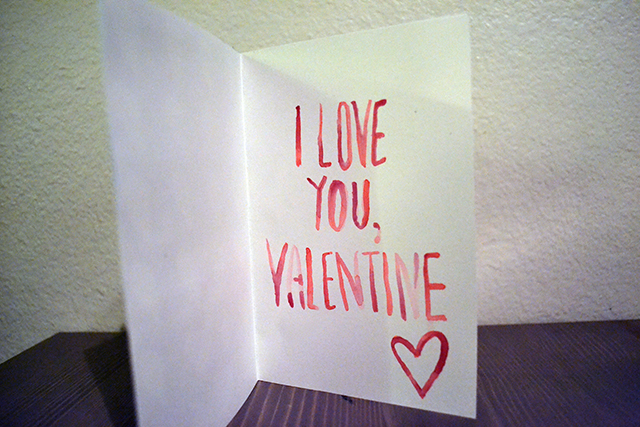 I LOVE
YOU,
VALENTINE